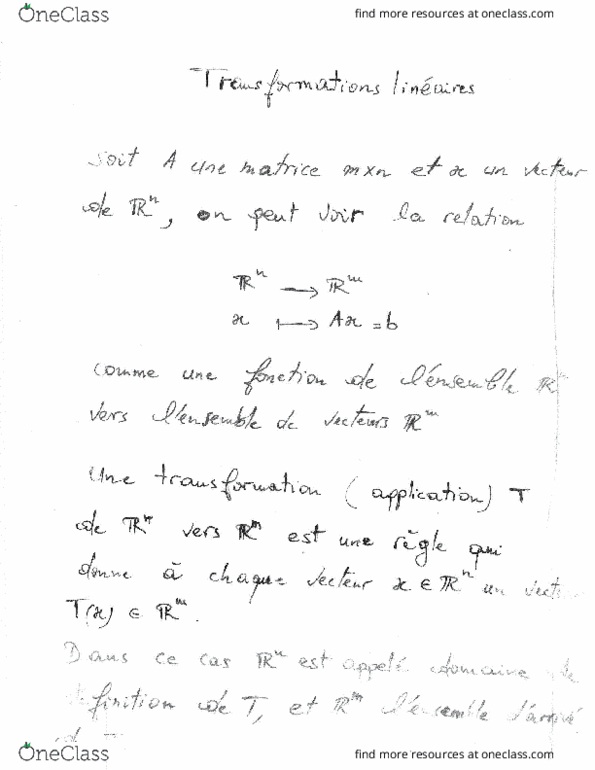 OneClass
find more resources at oneclass.com
Transformations linéaires
Soit A une matrice mxn et x un vecteur
de ℝⁿ, on peut voir la relation
ℝⁿ → ℝᵐ
x ↦ Ax = b
comme une fonction de l'énsemble ℝⁿ
vers l'ensemble de vecteurs ℝᵐ
Une transformation (application) T
de ℝⁿ vers ℝᵐ est une règle qui
donne à chaque vecteur x ∈ ℝⁿ un
T(x) ∈ ℝᵐ.
Dans ce cas ℝⁿ est appelé domaine de
finition de T, et ℝᵐ l'ensemble d'arrivé
OneClass
find more resources at oneclass.com